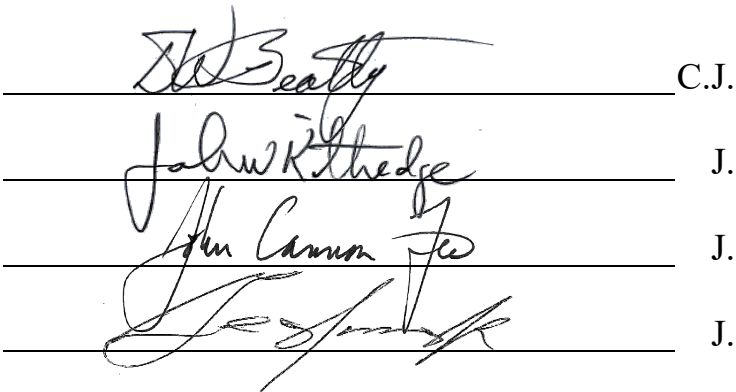 DW Beatty C.J.
John W Kittredge J.
John Cannon Few J.
J.